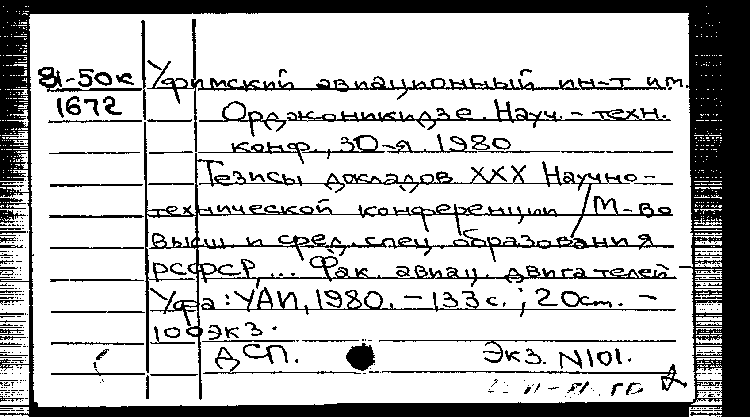 81-50к Уфимский авиационный ин-т им.
1672 Орджоникидзе. Науч.-техн.
конф., 30-я. 1980
Тезисы докладов XXX Научно-
технической конференции / М-во
высш. и сред. спец. образования
РСФСР, ... Фак. авиац. двигателей -
Уфа: УАИ, 1980. - 133 с.; 20 см. -
100 экз.
ДСП. Экз. N101.